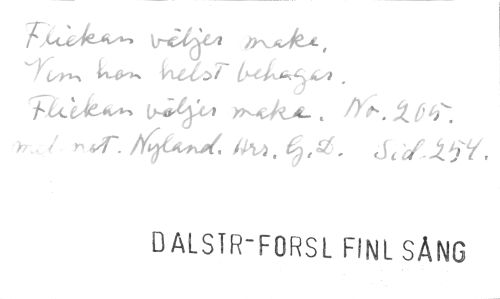 Flickan väljer maka.
Vem hon helst behagar.
Flickan väljer maka. Nr. 205.
med not. Nyland. Hrs. G. D. Sid. 254.
DALSTR-FORSL FINL SÅNG